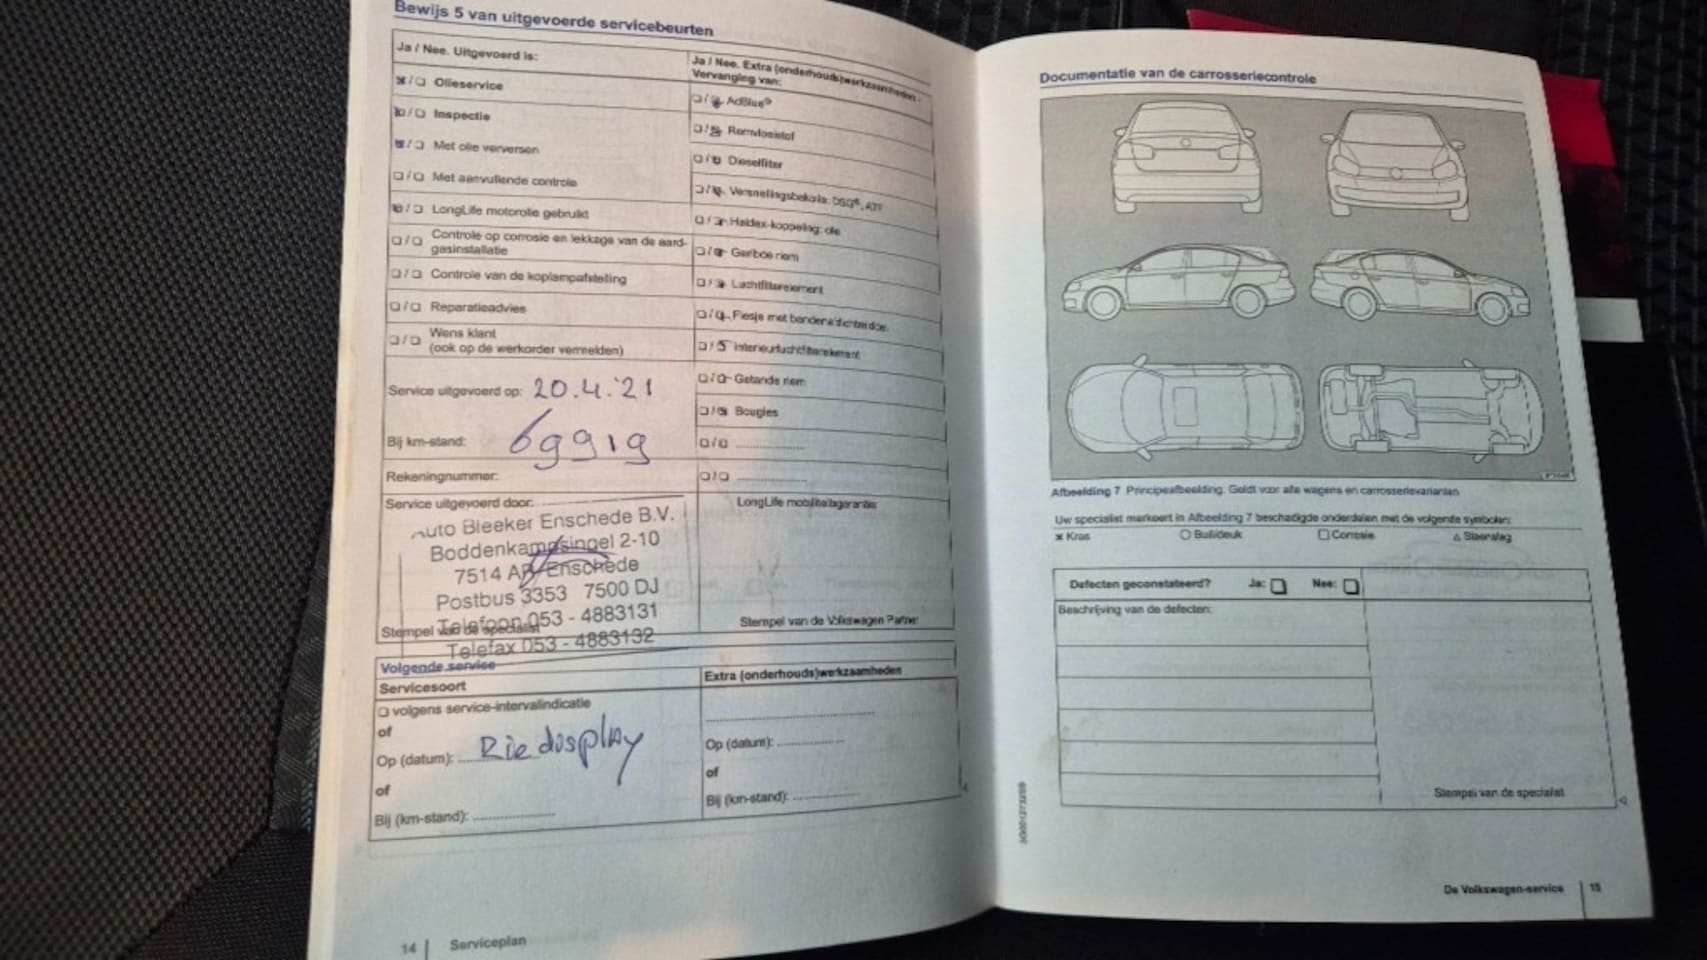 Bewijs 5 van uitgevoerde servicebeurten
Ja / Nee. Uitgevoerd is:
Olieservice
Inspectie
Met olie verversen
Met aanvullende controle
LongLife motorolie gebruikt
Controle op corrosie en lekkage van de aard-
gasinstallatie
Controle van de koplampafstelling
Reparatieadvies
Wens klant
(ook op de werkorder vermelden)
Service uitgevoerd op: 20.4.'21
Bij km-stand: 69919
Rekeningnummer:
Service uitgevoerd door:
Auto Bleeker Enschede B.V.
Boddenkampsingel 2-10
7514 AR Enschede
Postbus 3353 7500 DJ
Telefoon 053 - 4883131
Stempel van de specialist
Telefax 053 - 4883132
Ja / Nee. Extra (onderhouds)werkzaamheden -
Vervanging van:
AdBlue®
Remvloeistof
Dieselfilter
Versnellingsbakolie: DSG®, ATF
Haldex-koppeling: olie
Geribde riem
Luchtfilterelement
Flesje met bandenafdichtmiddel
Interieurluchtfilterelement
Getande riem
Bougies
LongLife mobiliteitsgarantie:
Stempel van de Volkswagen Partner
Volgende service
Servicesoort
volgens service-intervalindicatie
of
Op (datum): Zie display
of
Bij (km-stand):
Extra (onderhouds)werkzaamheden
Op (datum):
of
Bij (km-stand):
14 | Serviceplan
Documentatie van de carrosseriecontrole
Afbeelding 7 Principeafbeelding. Geldt voor alle wagens en carrosserievarianten
Uw specialist markeert in Afbeelding 7 beschadigde onderdelen met de volgende symbolen:
x Kras ○ Buil/deuk □ Corrosie △ Steenslag
Defecten geconstateerd? Ja: Nee:
Beschrijving van de defecten:
Stempel van de specialist
De Volkswagen-service | 15